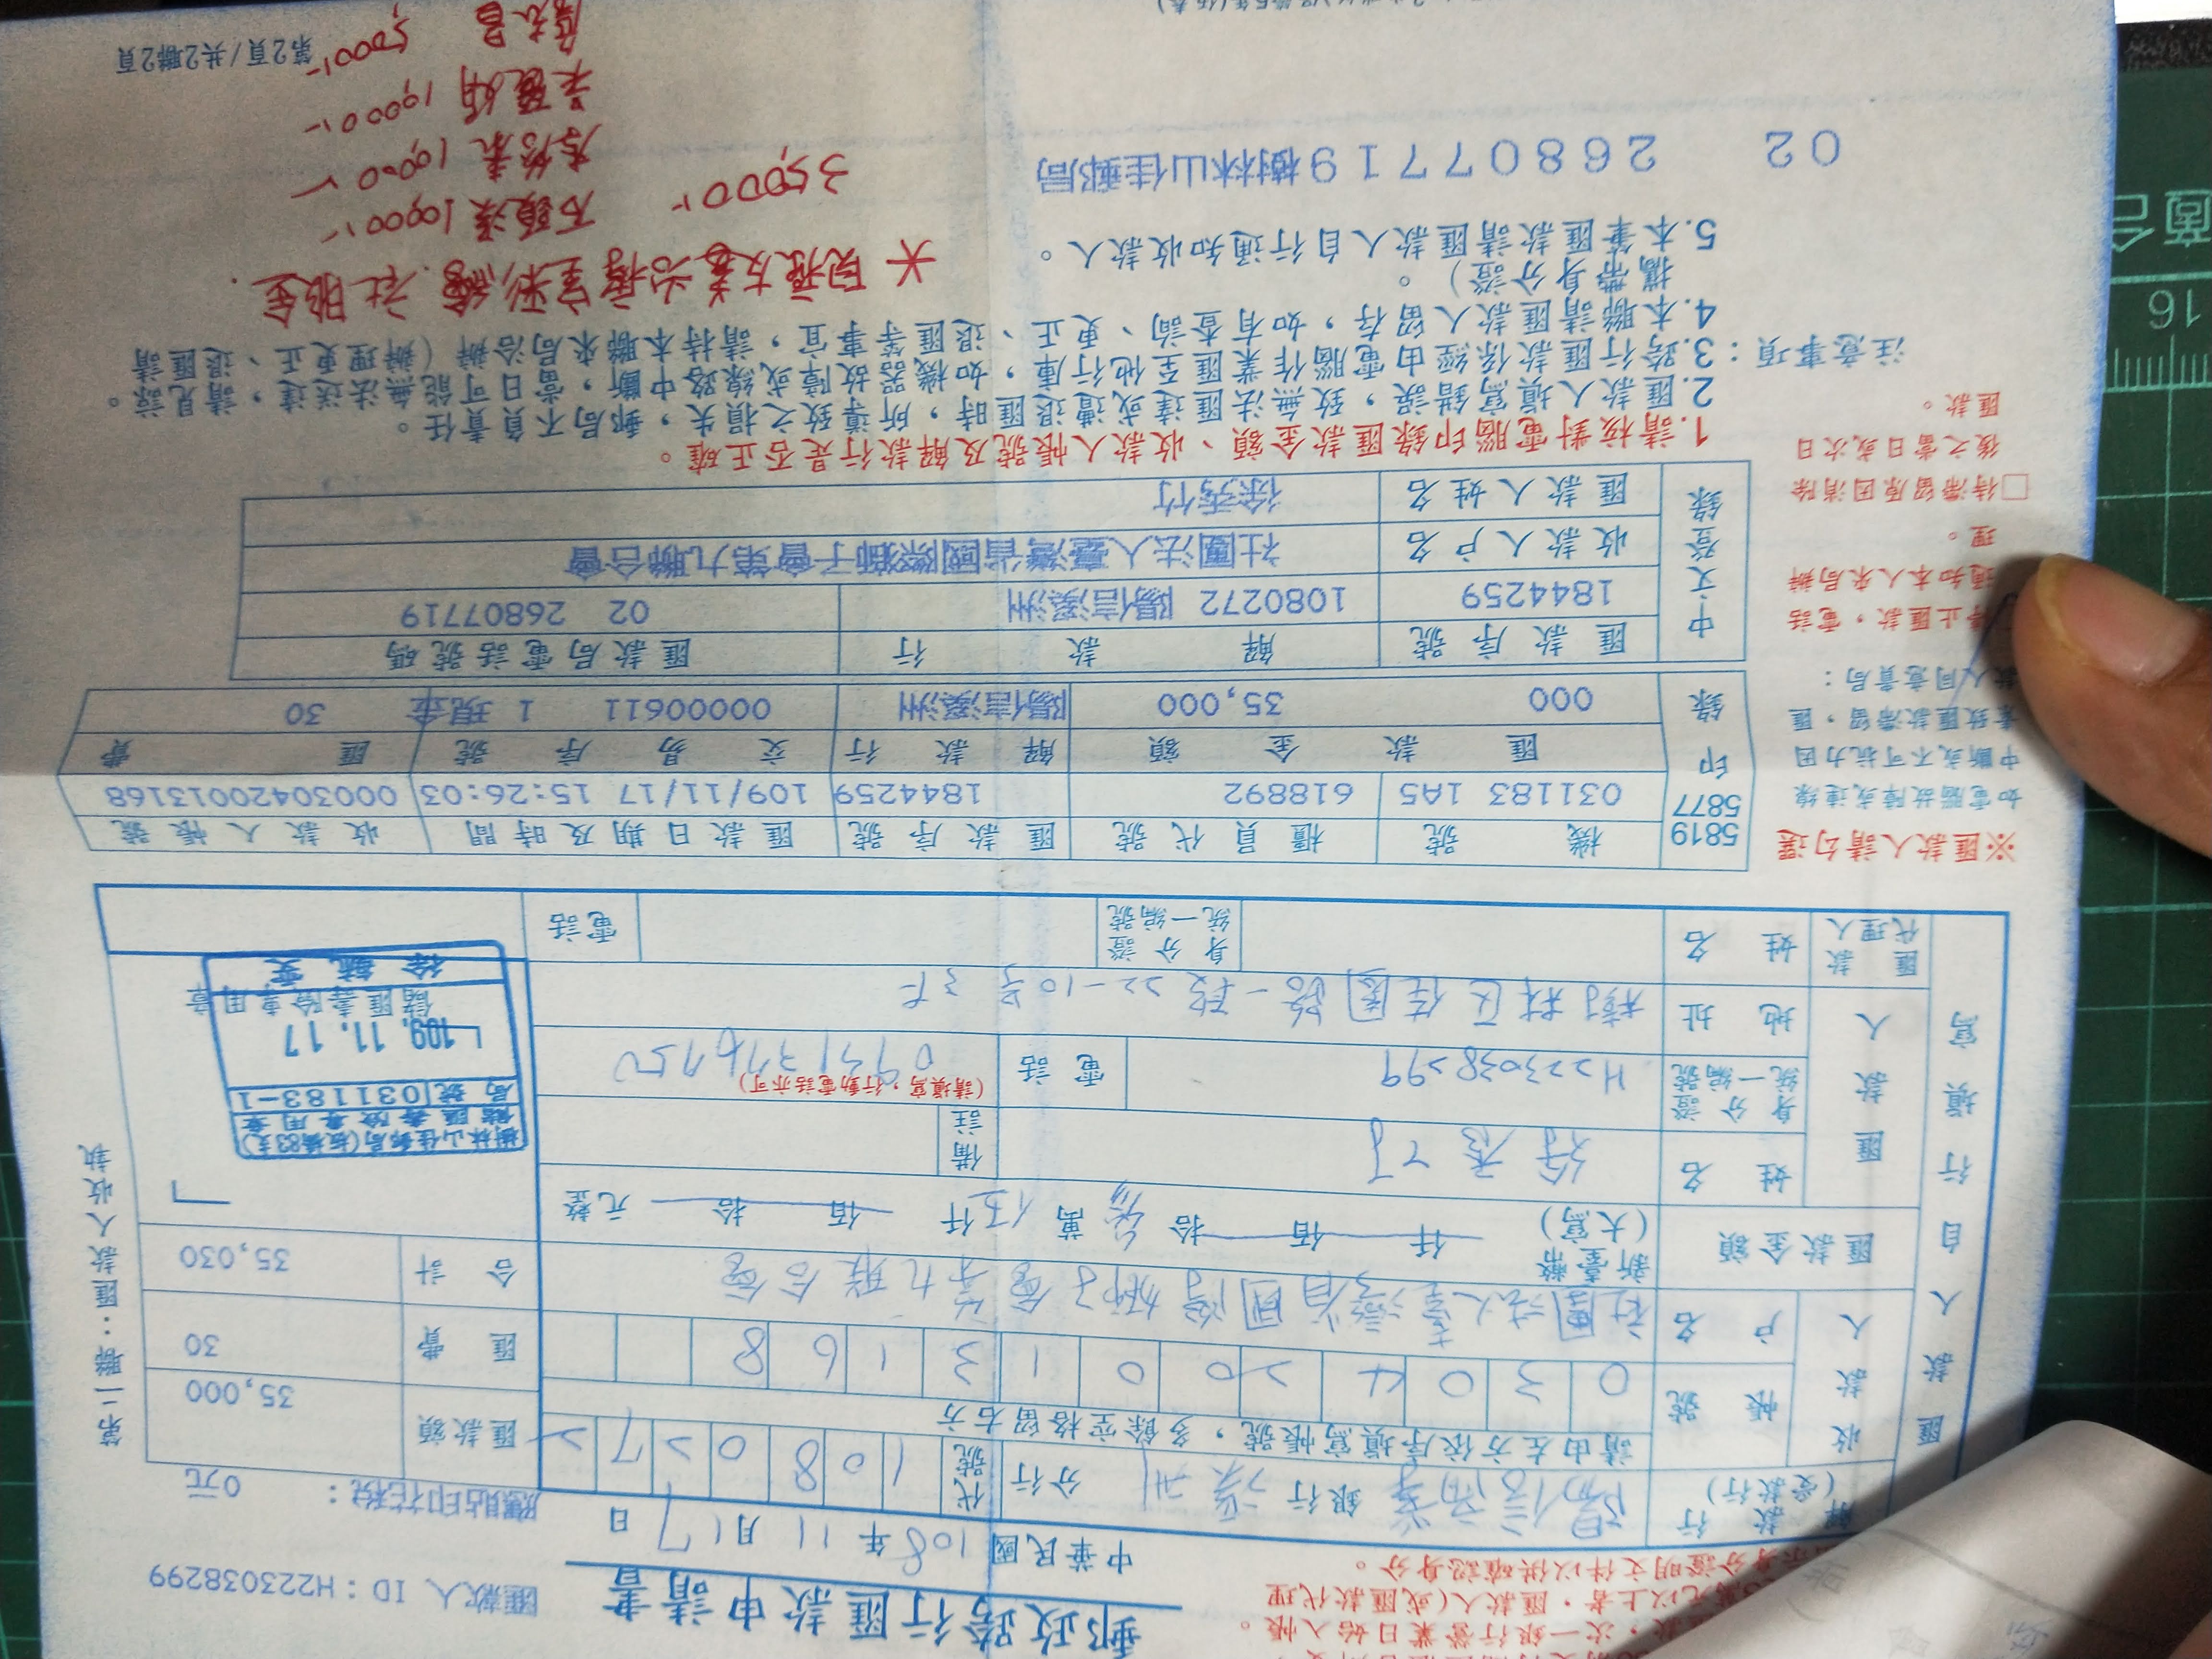 郵政跨行匯款申請書
匯款人 ID：H223038299
中華民國108年11月17日
應貼印花稅： 0元
解款行(受款行) 陽信商業 銀行 溪洲 分行 代號 1080272
請由左方依序填寫帳號，多餘空格留右方
收款人 帳號 0304200131 68
戶名 社團法人臺灣省國際獅子會第九聯合會
匯款金額 新臺幣(大寫) 仟 佰 拾 參 萬 伍 仟 佰 拾 元整
匯款額 35,000
匯費 30
合計 35,030
匯款人 姓名
備註
身分證統一編號 H223038299
電話 (請填寫，行動電話亦可)
地址 樹林區佳園路一段22-10号3F
匯款代理人 姓名
身分證統一編號
電話
匯款人自行填寫
第二聯：匯款人收執
樹林山佳郵局(板橋83支)
儲匯壽險專用章
局號 031183-1
109.11.17
儲匯壽險專用章
※匯款人請勾選
如電腦故障或連線
中斷或不可抗力因
素致匯款滯留，匯
款人同意貴局：
停止匯款，電話
通知本人來局辦
理。
□待滯留原因消除
後之當日或次日
匯款。
5819
5877
印錄
機號 櫃員代號 匯款序號 匯款日期及時間 收款人帳號
031183 1A5 618892 1844259 109/11/17 15:26:03 00030420013168
匯款金額 解款行 交易序號 匯費
000 35,000 陽信溪洲 00000611 1 現金 30
中文登錄
匯款序號 解款行 匯款局電話號碼
1844259 1080272 陽信溪洲 02 26807719
收款人戶名 社團法人臺灣省國際獅子會第九聯合會
匯款人姓名 徐秀竹
注意事項：
1.請核對電腦印錄匯款金額、收款人帳號及解款行是否正確。
2.匯款人填寫錯誤，致無法匯達或遭退匯時，所導致之損失，郵局不負責任。
3.跨行匯款係經由電腦作業匯至他行庫，如機器故障或線路中斷，當日可能無法送達，請見諒。
4.本聯請匯款人留存，如有查詢、更正、退匯等事宜，請持本聯來局洽辦（辦理更正、退匯請
攜帶身分證）。
5.本筆匯款請匯款人自行通知收款人。
02 26807719樹林山佳郵局
35,000
10,000
10,000
10,000
5,000
第2頁/共2聯2頁
16